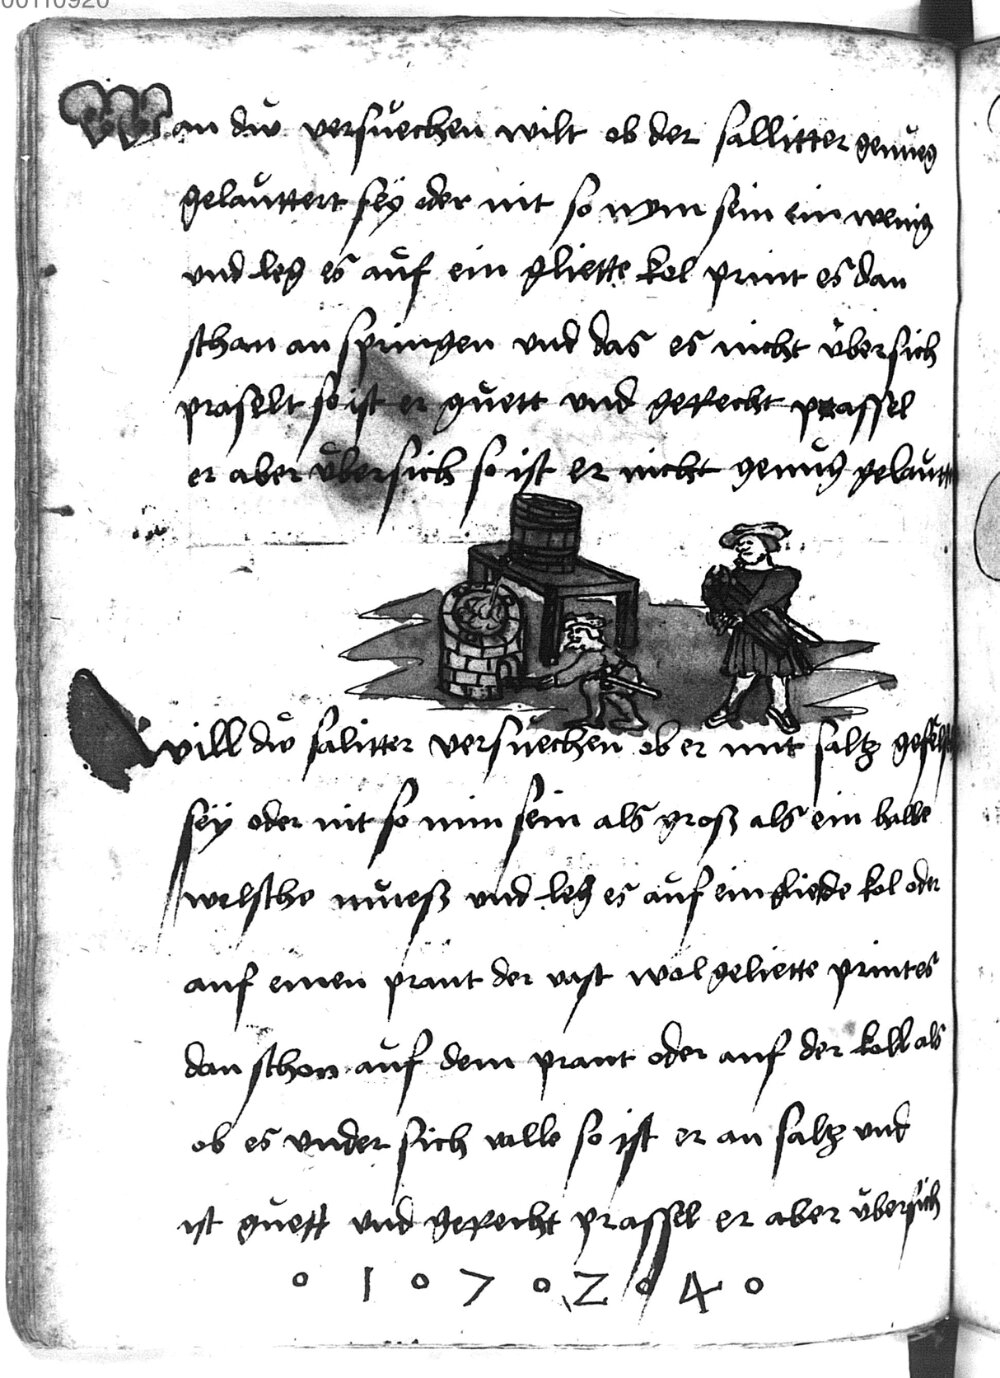 00110920
Wan dw versuechen wilt ob der sallitter genueg
gelauttert seÿ oder nit so nym sein ein wenig
vnd leg es auf ein gliette kol print es dan
schan an springen vnd das es nicht übersich
praselt so ist er guett vnd gerecht prassel
er aber übersich so ist er nicht genug gelautt
will dw salitter versuechen ob er mit saltz
seÿ oder nit so nim sein als groß als ein halbe
welsche nueß vnd leg es auf ein gliede kol oder
auf einen prant der vast wol geliette print es
dan schon auf dem prant oder auf der koll als
ob es vnder sich valle so ist er an saltz vnd
ist guett vnd gerecht prassel er aber übersich
° 1 ° 7 ° 2 ° 4 °